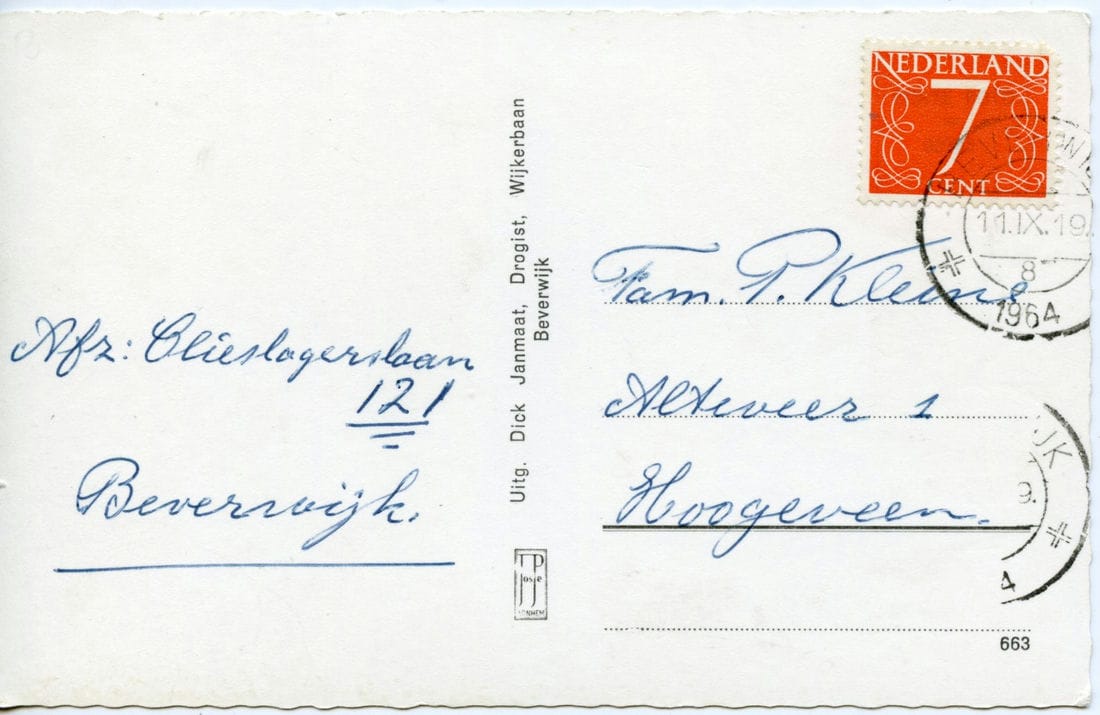 Afz: Olieslagerslaan
121
Beverwijk.
Uitg. Dick Janmaat, Drogist, Wijkerbaan
Beverwijk
JP
Josje
NEDERLAND
7
CENT
11.IX.19.
8
1964
Fam. P. Kleine
Alteveer 1
Hoogeveen.
IJK
9.
4
663